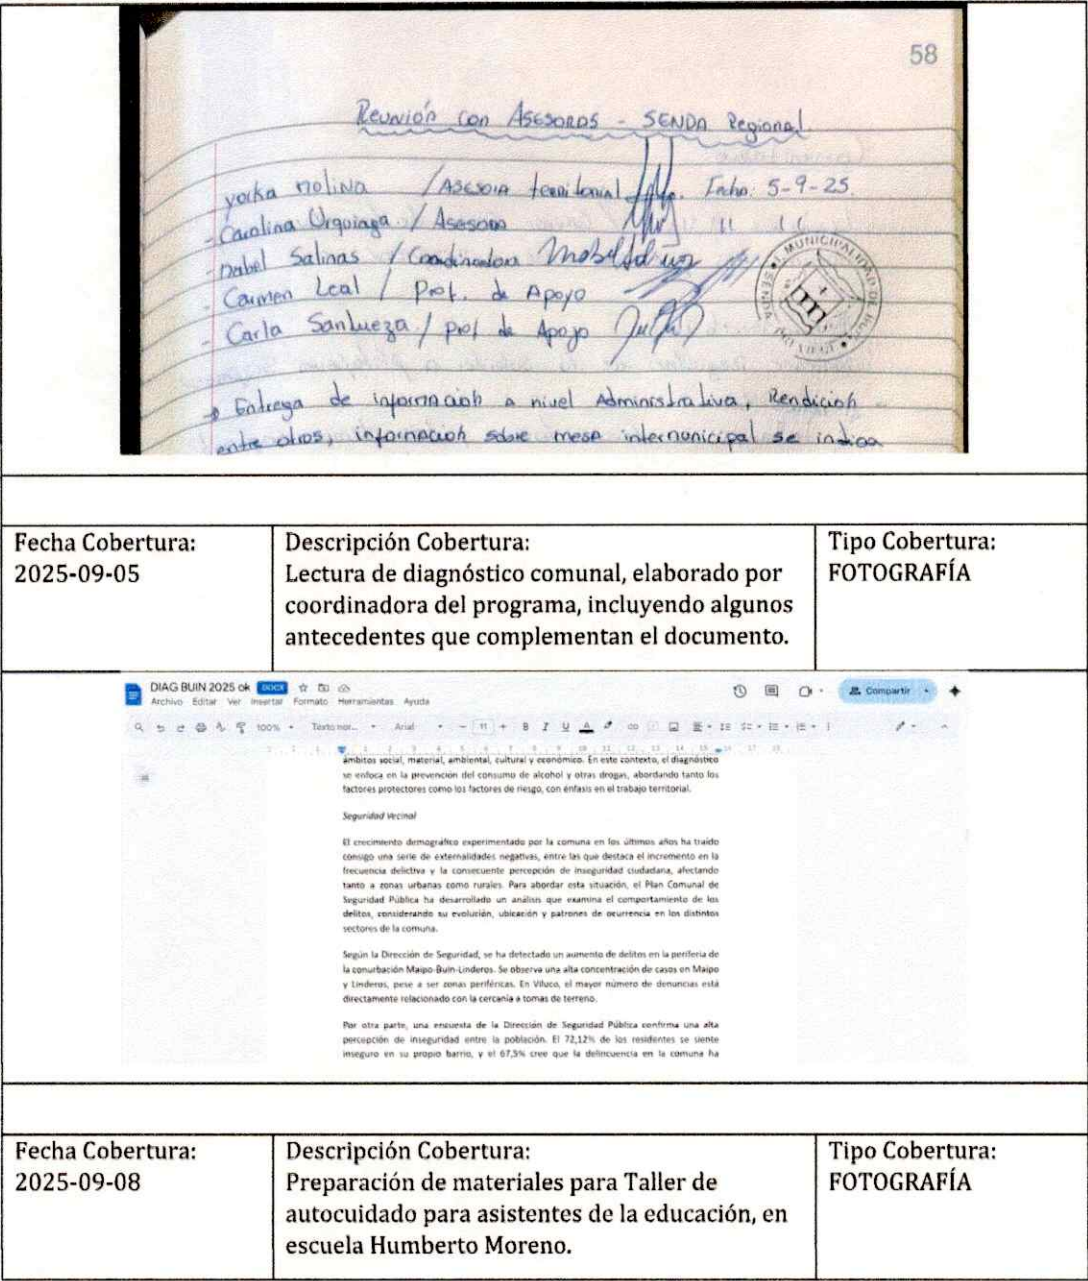 58
Reunión con Asesoras - SENDA Regional.
yorka molina / Asesora territorial Fecha: 5-9-25.
- Carolina Urquiaga / Asesora 11 11
- mabel Salinas / Coordinadora
- Carmen Leal / Prof. de Apoyo
- Carla Sanhueza / prof de Apoyo
Entrega de informacioh a nivel Administrativa, Rendicioh
entre otros, informacioh sobre mesa intermunicipal se indica
Fecha Cobertura:
2025-09-05
Descripción Cobertura:
Lectura de diagnóstico comunal, elaborado por
coordinadora del programa, incluyendo algunos
antecedentes que complementan el documento.
Tipo Cobertura:
FOTOGRAFÍA
DIAG BUIN 2025 ok DOCX
Archivo Editar Ver Insertar Formato Herramientas Ayuda
Compartir
100% Texto nor... Arial 11 B I U A
ámbitos social, material, ambiental, cultural y económico. En este contexto, el diagnóstico
se enfoca en la prevención del consumo de alcohol y otras drogas, abordando tanto los
factores protectores como los factores de riesgo, con énfasis en el trabajo territorial.
Seguridad Vecinal
El crecimiento demográfico experimentado por la comuna en los últimos años ha traído
consigo una serie de externalidades negativas, entre las que destaca el incremento en la
frecuencia delictiva y la consecuente percepción de inseguridad ciudadana, afectando
tanto a zonas urbanas como rurales. Para abordar esta situación, el Plan Comunal de
Seguridad Pública ha desarrollado un análisis que examina el comportamiento de los
delitos, considerando su evolución, ubicación y patrones de ocurrencia en los distintos
sectores de la comuna.
Según la Dirección de Seguridad, se ha detectado un aumento de delitos en la periferia de
la conurbación Maipo-Buin-Linderos. Se observa una alta concentración de casos en Maipo
y Linderos, pese a ser zonas periféricas. En Viluco, el mayor número de denuncias está
directamente relacionado con la cercanía a tomas de terreno.
Por otra parte, una encuesta de la Dirección de Seguridad Pública confirma una alta
percepción de inseguridad entre la población. El 72,12% de los residentes se siente
inseguro en su propio barrio, y el 67,5% cree que la delincuencia en la comuna ha
Fecha Cobertura:
2025-09-08
Descripción Cobertura:
Preparación de materiales para Taller de
autocuidado para asistentes de la educación, en
escuela Humberto Moreno.
Tipo Cobertura:
FOTOGRAFÍA